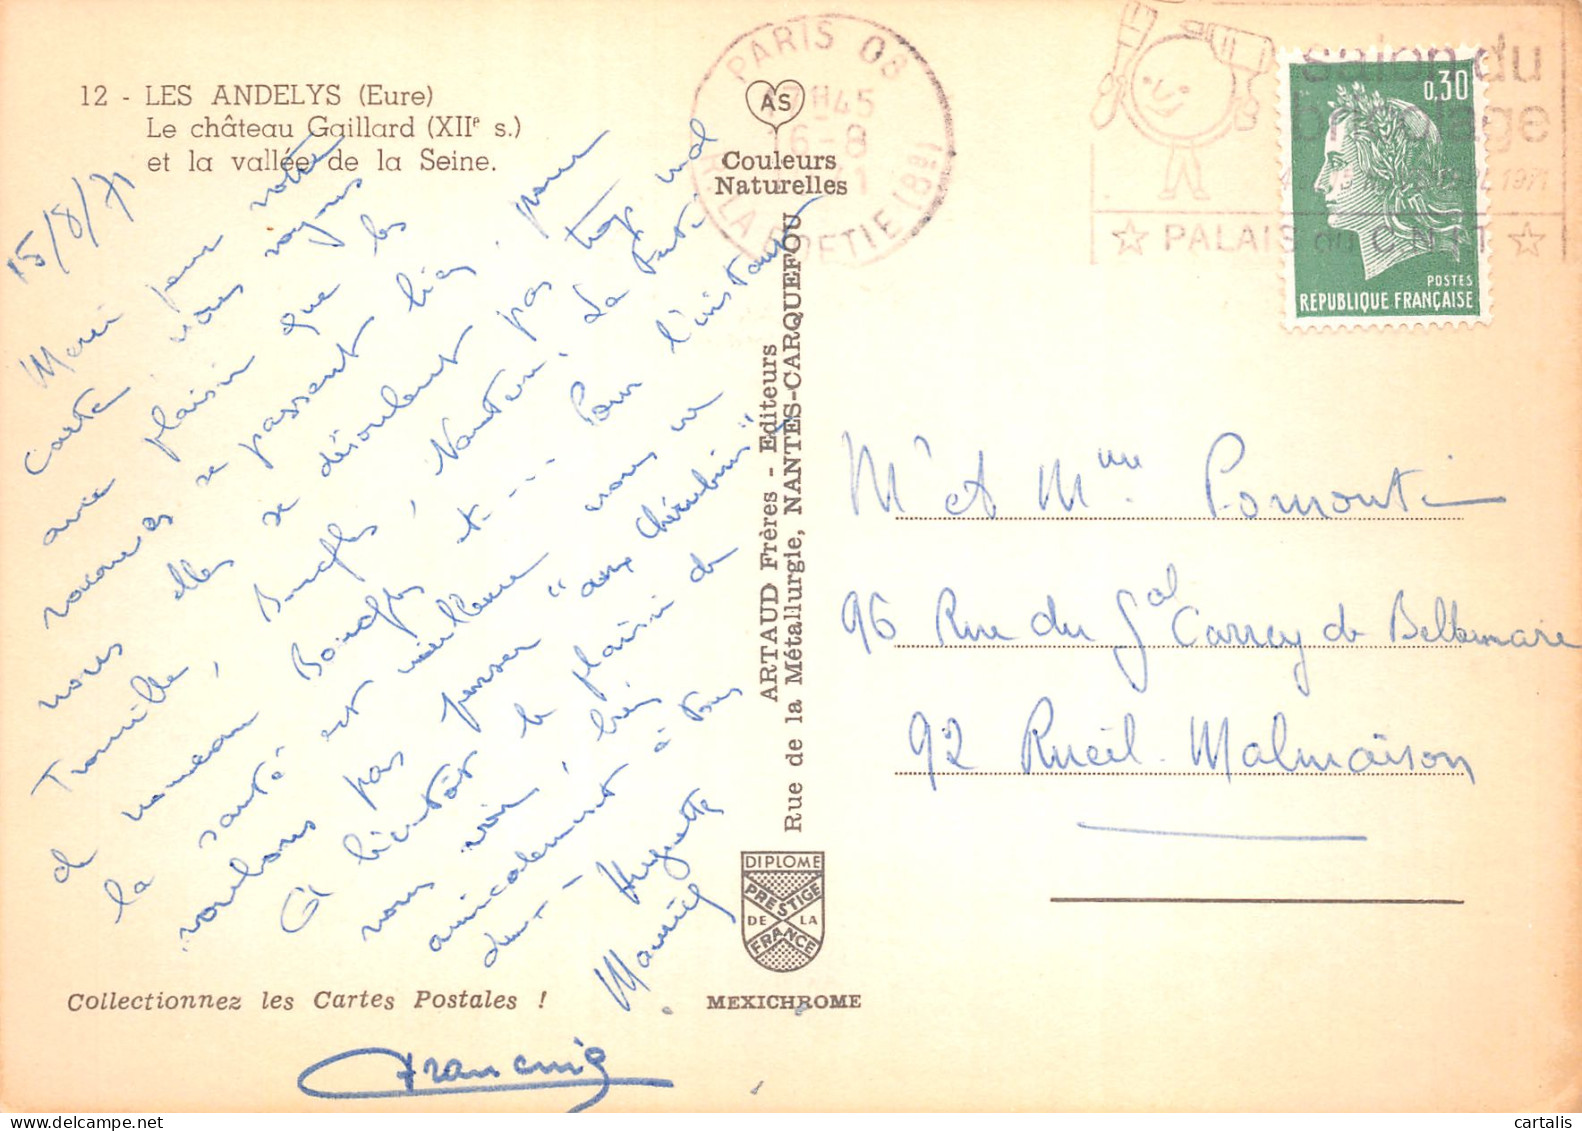 12 - LES ANDELYS (Eure)
Le château Gaillard (XIIe s.)
et la vallée de la Seine.
15/8/71
Merci pour votre
carte, nous voyons
avec plaisir que les
vacances se passent bien, pour
nous elles se déroulent pas trop mal
Trouville, Bouafles, Nanterre, La Ferté
de nouveau Bouafles et --- Pour l'instant
la santé est meilleure nous ne
voulons pas penser "aux chérubins"
A bientôt le plaisir de
vous voir, bien
amicalement à tous
deux -- Huguette
Maurice
Francine
Collectionnez les Cartes Postales !
AS
Couleurs
Naturelles
ARTAUD Frères - Editeurs
Rue de la Métallurgie, NANTES-CARQUEFOU
DIPLOME
PRESTIGE
DE LA
FRANCE
MEXICHROME
PARIS 08
17H45
6-8
R. LA BOETIE (8e)
salon du
bricolage
1971
☆ PALAIS du C.N.I.T ☆
0,30
POSTES
REPUBLIQUE FRANÇAISE
Mr et Mme Pomonti
96 Rue du Gal Carrey de Bellemare
92 Rueil-Malmaison
cartalis